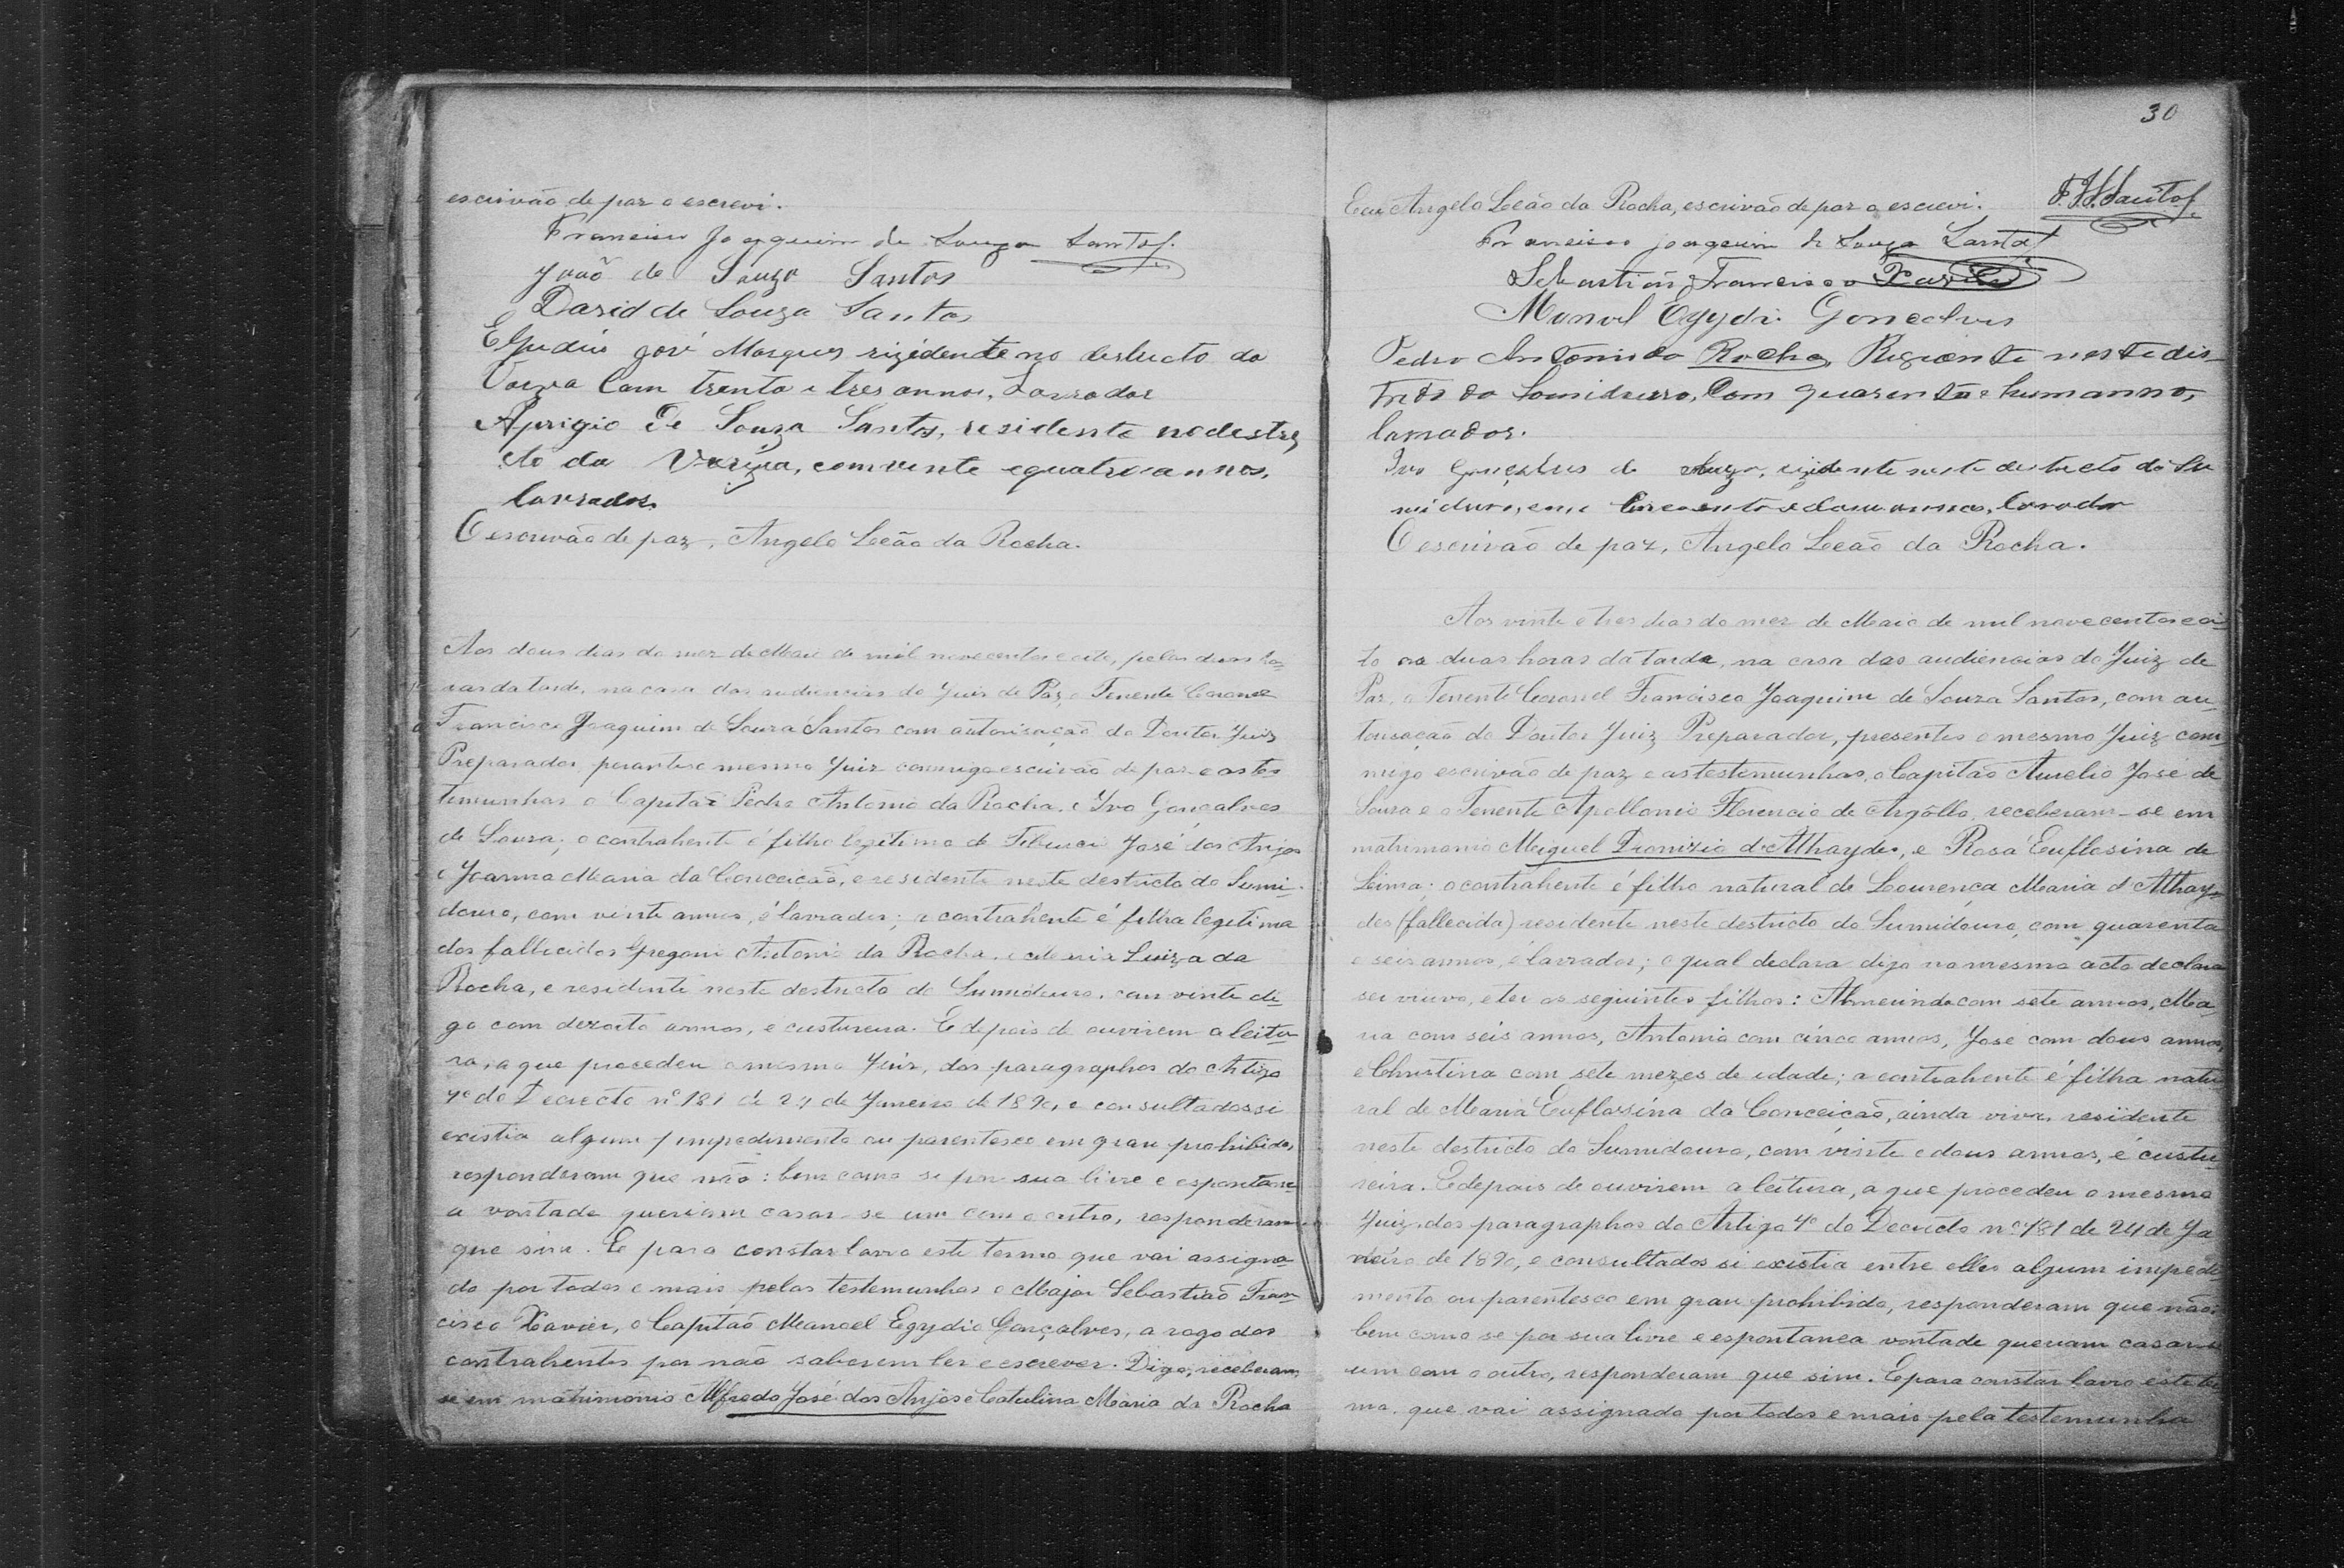 escrivão de paz o escrevi.
Francisco Joaquim de Souza Santos.
João de Souza Santos
David de Souza Santos
Elpidio José Marques rizidente no destricto da
Varzea Com trenta e tres annos, Lavrador
Aprigio de Souza Santos, residente nodestri
cto da Varzea, comvinte equatro annos,
lavrador
O escrivão de paz, Angelo Leão da Rocha.
Aos dous dias do mez de Maio de mil novecentos e oito, pelas duas ho-
ras da tarde, na casa das audiencias do Juiz de Paz, o Tenente Coronel
Francisco Joaquim de Souza Santos com autorisação do Doutor Juiz
Preparador, perante o mesmo Juiz commigo escrivão de paz e as tes
temunhas o Capitão Pedro Antonio da Rocha, e Ivo Gonçalves
de Souza; o contrahente é filho legitimo de José dos Anjos
e Joanna Maria da Conceição, e residente neste destricto do Sumi-
douro, com vinte annos, é lavrador; a contrahente é filha legitima
dos fallecidos Gregorio Antonio da Rocha, e Maria Luiza da
Rocha, e residente neste destricto do Sumidouro, com vinte di-
go com dezoito annos, e custureira. E depois de ouvirem a leitu-
ra, a que procedeu o mesmo Juiz, dos paragraphos do Artigo
4º do Decrecto nº 181 de 24 de Janeiro de 1890, e consultados si
existia algum impedimento ou parentesco em grau prohibido,
responderam que não: bem como se por sua livre e espontane-
a vontade queriam casar-se um com o outro, responderam
que sim. E para constar lavro este termo que vai assigna-
do por todos e mais pelas testemunhas o Major Sebastião Fran-
cisco Xavier, o Capitão Manoel Egydio Gonçalves, a rogo dos
contrahentes por não saberem ler e escrever. Digo, receberam-
se em matrimonio Alfredo José dos Anjos e Catulina Maria da Rocha
30
Eu, Angelo Leão da Rocha, escrivão de paz o escrevi. F.J.S.Santos.
Francisco Joaquim de Souza Santos
Sebastião Francisco Xavier
Manoel Egydio Gonçalves
Pedro Antonio da Rocha, Rezidente neste dis-
trito do Somidouro, Com quarenta e hum anno,
lavrador.
Ivo Gonçalves de Souza, rizidente neste destricto do Su
midouro, com annos, Lavrador
O escrivão de paz, Angelo Leão da Rocha.
Aos vinte e tres dias do mez de Maio de mil novecentos e oi-
to as duas horas da tarde, na casa das audiencias do Juiz de
Paz, o Tenente Coronel Francisco Joaquim de Souza Santos, com au-
torisação do Doutor Juiz Preparador, presentes o mesmo Juiz com-
migo escrivão de paz e as testemunhas, o Capitão Aurelio José de
Souza e o Tenente Apollonio Florencio de Argôllo, receberam-se em
matrimonio Miguel Dionizio d'Athaydes, e Rosa Euflosina de
Lima; o contrahente é filho natural de Lourença Maria d'Athay-
des (fallecida) residente neste destricto do Sumidouro, com quarenta
e seis annos, é lavrador; o qual declara digo no mesmo acto declara
ser viuvo, e ter os seguintes filhos: Almerinda com sete annos, Ma-
ria com seis annos, Antonia com cinco annos, José com dous annos,
e Christina com sete mezes de idade; a contrahente é filha natu
ral de Maria Euflosina da Conceição, ainda viva, residente
neste destricto do Sumidouro, com vinte e dous annos, é custu-
reira. E depois de ouvirem a leitura, a que procedeu o mesmo
Juiz, dos paragraphos do Artigo 4º do Decrecto nº 181 de 24 de Ja
neiro de 1890, e consultados si existia entre elles algum impedi
mento ou parentesco em grau prohibido, responderam que não:
bem como se por sua livre e espontanea vontade queriam casar-se
um com o outro, responderam que sim. E para constar lavro este ter
mo, que vai assignado por todos e mais pela testemunha